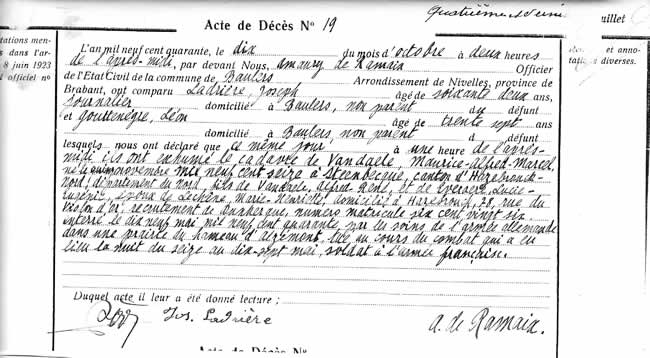 Quatrième
Acte de Décès N° 19
uillet
tations men-
s dans l'ar-
8 juin 1923
l officiel n°
et annо-
tations diverses.
L'an mil neuf cent quarante, le dix du mois d'octobre à deux heures
de l'après-midi, par devant Nous, Amaury de Ramaix Officier
de l'Etat Civil de la commune de Baulers Arrondissement de Nivelles, province de
Brabant, ont comparu Ladrière, Joseph âgé de soixante deux ans,
journalier domicilié à Baulers, non parent du défunt
et Gouttenègre, Léon âgé de trente sept ans
domicilié à Baulers, non parent d défunt
lesquels nous ont déclaré que ce même jour à une heure de l'après-
midi ils ont exhumé le cadavre de Vandaele, Maurice-Alfred-Marcel,
né le quinze novembre mil neuf cent seize à Steenbecque, canton d'Hazebrouck-
Nord, département du Nord, fils de Vandaele, Alfred René, et de Evrere, Lucie-
Eugénie, époux de Marie-Henriette, domicilié à Hazebrouck, 75, rue du
Violon d'or, recrutement de Dunkerque, numéro matricule six cent vingt six
enterré le dix neuf mai mil neuf cent quarante, par les soins de l'armée allemande
dans une prairie du hameau d'Alzémont, tué au cours du combat qui a eu
lieu la nuit du seize au dix-sept mai, soldat à l'armée française.
Duquel acte il leur a été donné lecture ;
Jos. Ladrière A. de Ramaix.
Acte de Décès N°